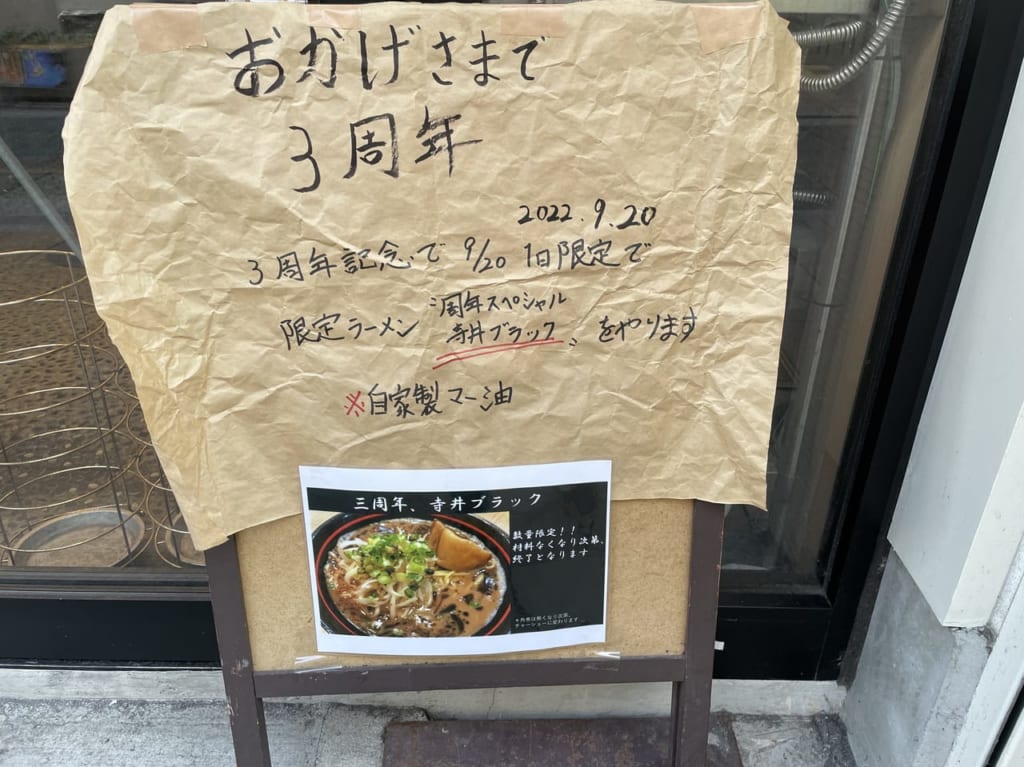 おかげさまで
3周年
2022.9.20
3周年記念で 9/20 1日限定で
限定ラーメン 〝周年スペシャル
寺井ブラック〟をやります
※自家製マー油
三周年、寺井ブラック
数量限定！！
材料なくなり次第、
終了となります
＊角煮は無くなり次第、
チャーシューに変わります